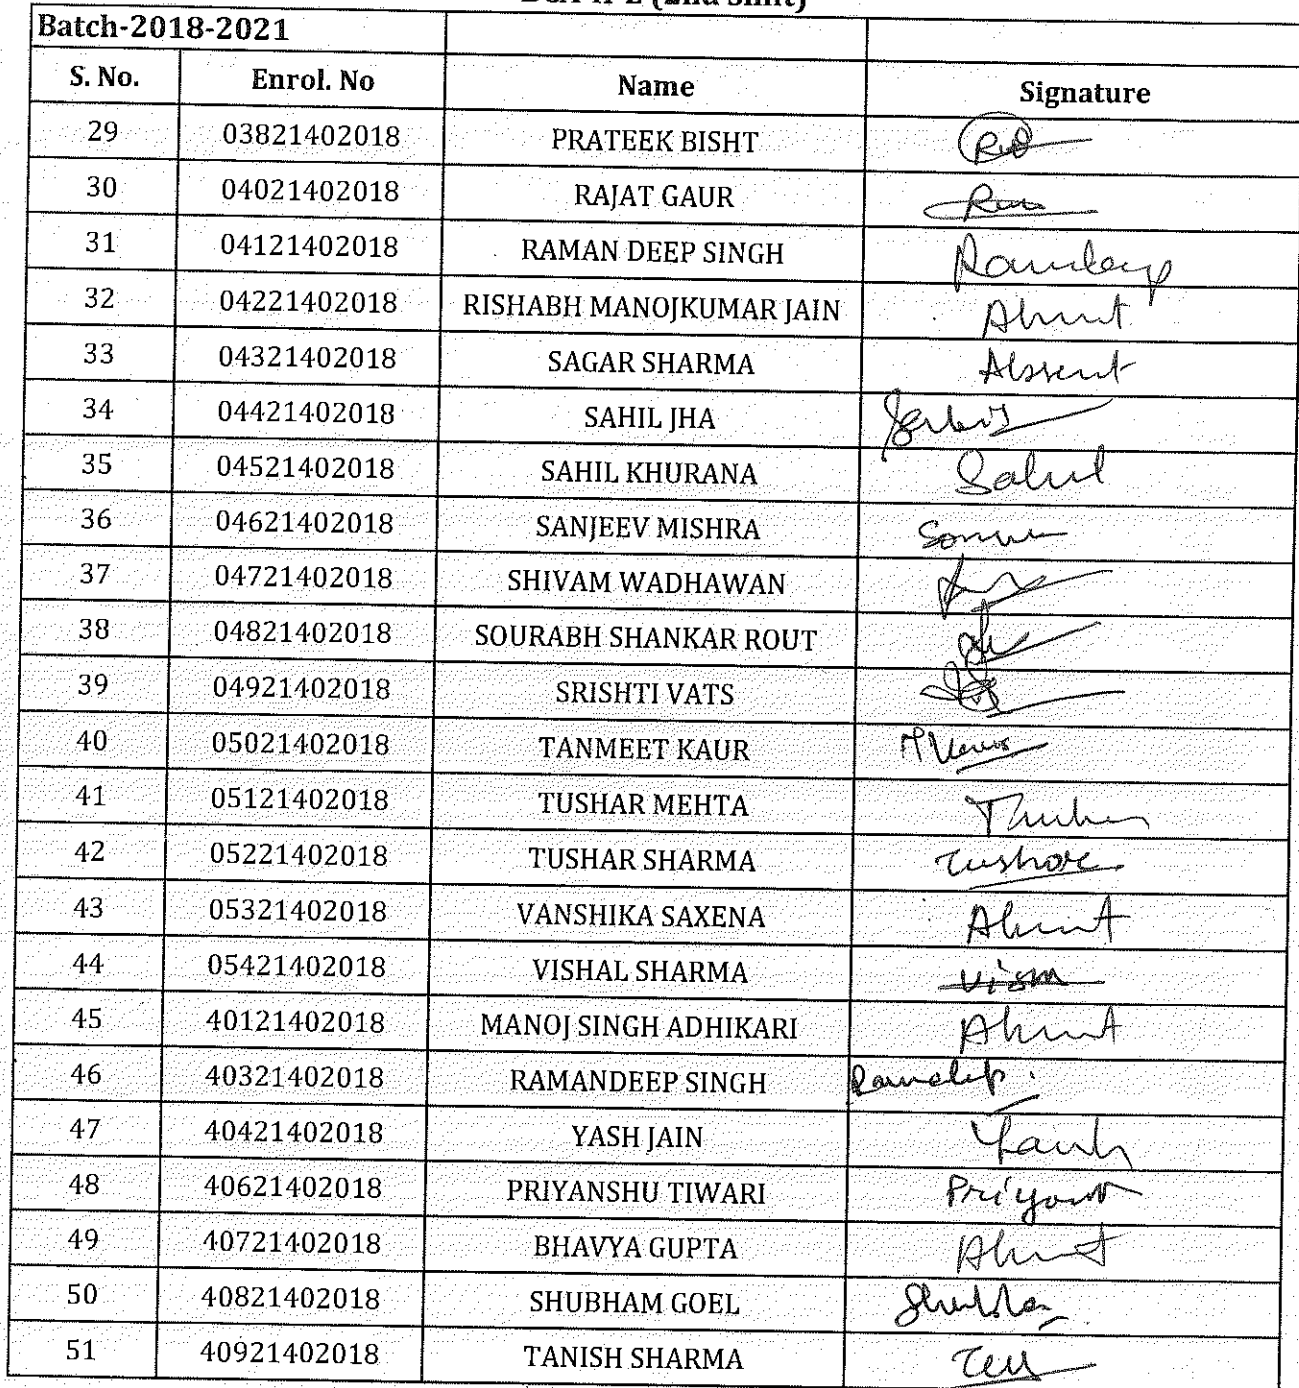 (2nd Shift)
Batch-2018-2021
S. No. Enrol. No Name Signature
29 03821402018 PRATEEK BISHT
30 04021402018 RAJAT GAUR
31 04121402018 RAMAN DEEP SINGH Ramdeep
32 04221402018 RISHABH MANOJKUMAR JAIN Absent
33 04321402018 SAGAR SHARMA Absent
34 04421402018 SAHIL JHA
35 04521402018 SAHIL KHURANA Sahil
36 04621402018 SANJEEV MISHRA
37 04721402018 SHIVAM WADHAWAN
38 04821402018 SOURABH SHANKAR ROUT
39 04921402018 SRISHTI VATS
40 05021402018 TANMEET KAUR
41 05121402018 TUSHAR MEHTA
42 05221402018 TUSHAR SHARMA
43 05321402018 VANSHIKA SAXENA Absent
44 05421402018 VISHAL SHARMA
45 40121402018 MANOJ SINGH ADHIKARI Absent
46 40321402018 RAMANDEEP SINGH Ramdeep
47 40421402018 YASH JAIN
48 40621402018 PRIYANSHU TIWARI
49 40721402018 BHAVYA GUPTA Absent
50 40821402018 SHUBHAM GOEL
51 40921402018 TANISH SHARMA